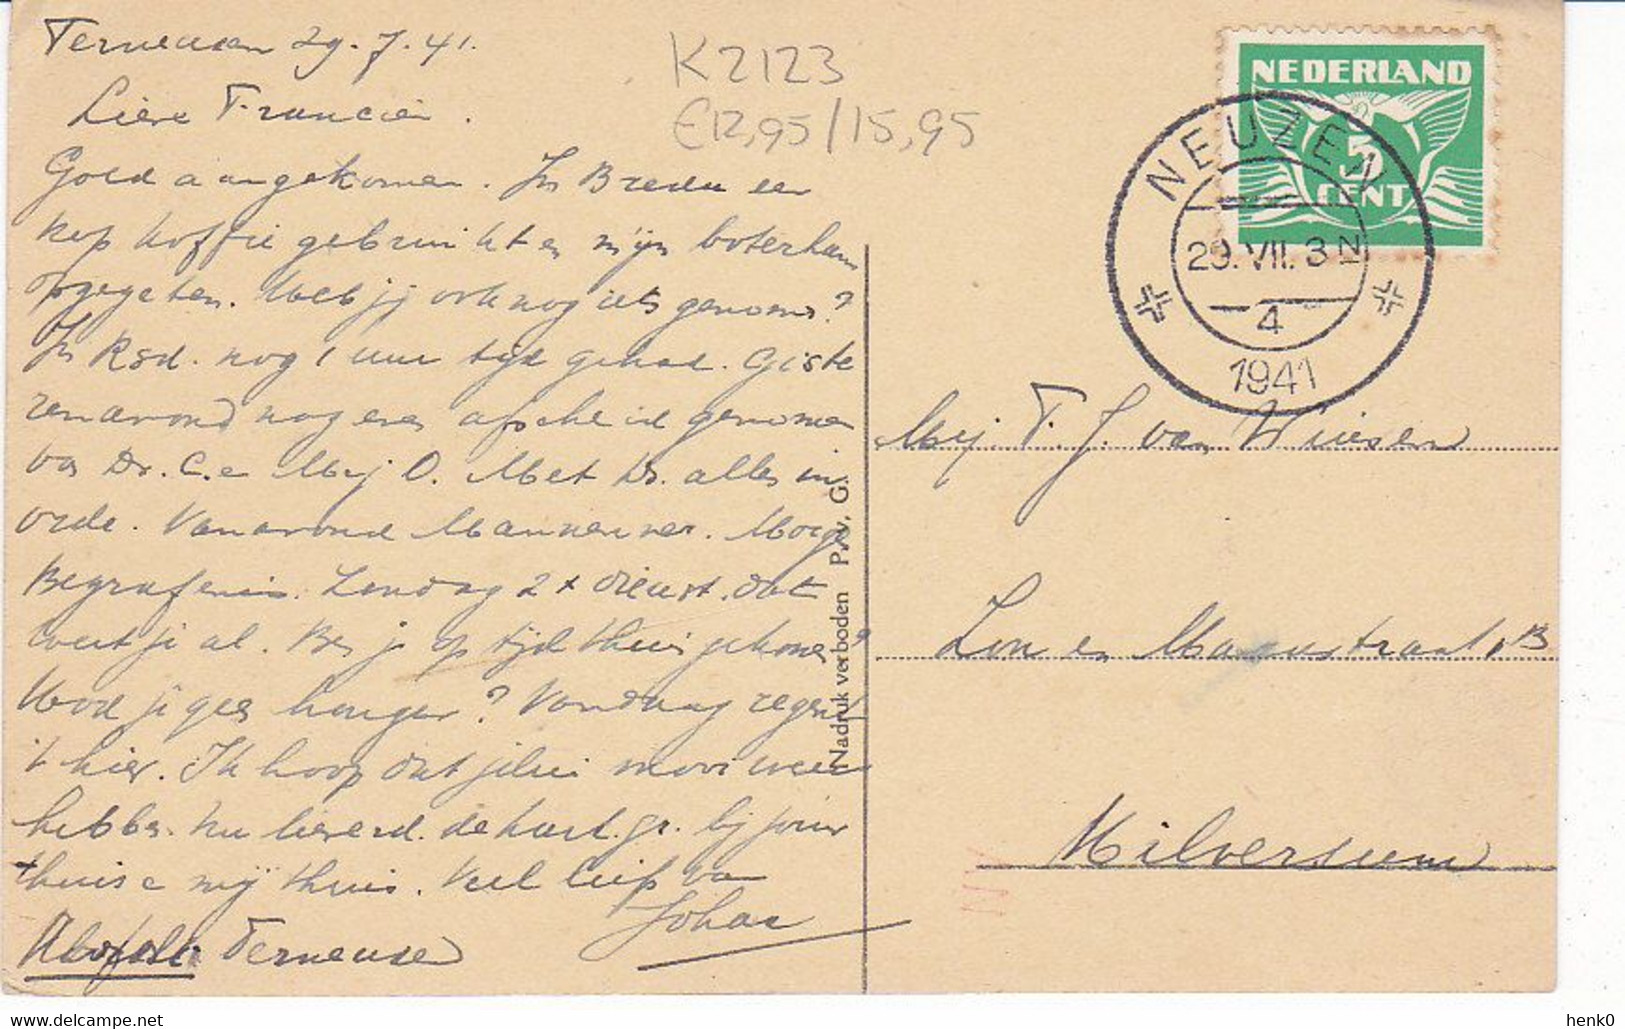 Terneuzen 29.7.41.
Lieve Francien.
Goed aangekomen. In Breda een
kop koffie gebruikt en mijn boterham
opgegeten. Heb jij ook nog iets genomen?
In Rsd. nog 1 uur tijd gehad. Giste
renavond nog even afscheid genomen
van Dr. C. e Mej O. Met Dr. alles in
orde. Vanavond Mannenver. Morge
Begrafenis. Zondag 2 x dienst. dat
weet je al. Ben je op tijd thuis gekomen?
Had je geen honger? Vandaag regent
't hier. Ik hoop dat jelui mooi weer
hebben. Nu lieverd. de hart. gr. bij jouw
thuis e mij thuis. Veel liefs van
Johan
Terneuzen
K2123
€12,95/15,95
NEDERLAND
5
CENT
NEUZEN
29.VII.3 N
4
1941
Mej. F. J. van
Zon en Maanstraat 13
Hilversum
Nadruk verboden P. v. G.
henk0